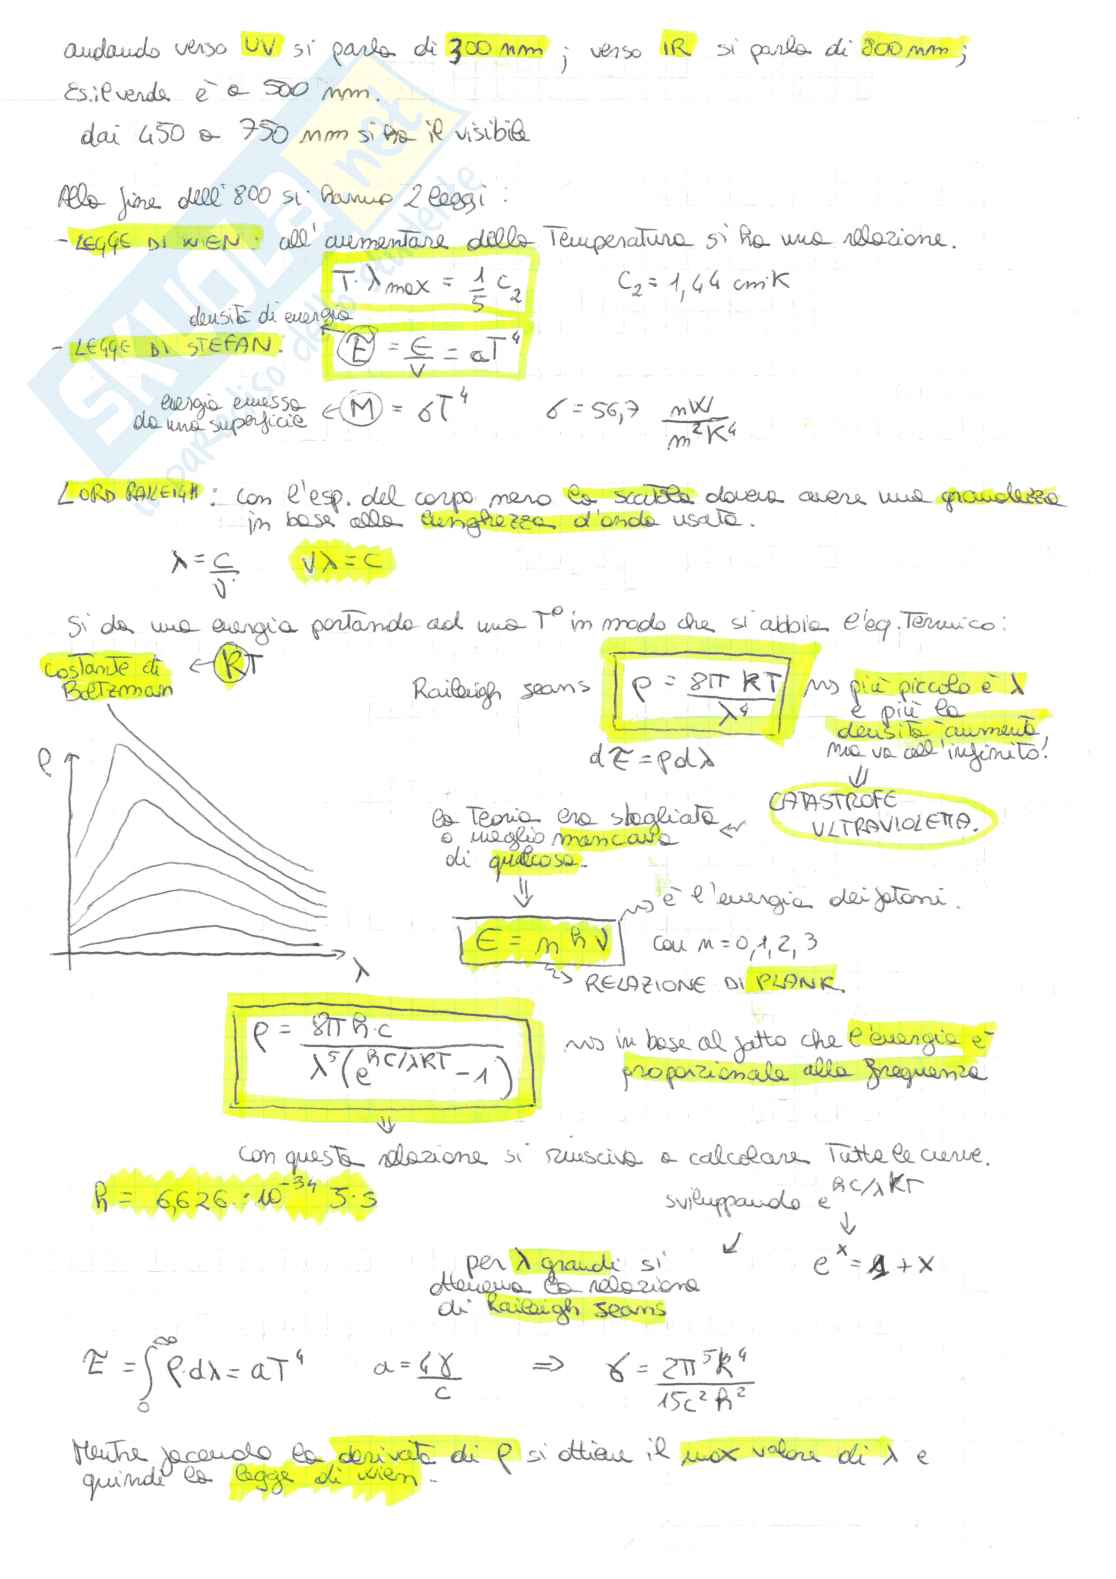 andando verso UV si parla di 300 nm ; verso IR si parla di 800 nm ;
Es. il verde è a 500 nm.
dai 450 a 750 nm si ha il visibile
Alla fine dell'800 si hanno 2 leggi :
- LEGGE DI WIEN : all'aumentare della Temperatura si ha una relazione.
T · λmax = 1/5 c2    C2 = 1,44 cm·K
densità di energia
- LEGGE DI STEFAN : E = E/V = aT^4
energia emessa da una superficie ← M = σT^4    σ = 56,7 nW/m^2K^4
LORD RAILEIGH : con l'esp. del corpo nero la scatola doveva avere una grandezza
in base alla lunghezza d'onda usata.
λ = c/ν    νλ = c
Si da una energia portando ad una T° in modo che si abbia l'eq. Termico :
costante di Boltzmann ← KT
Raileigh Jeans ρ = 8π KT/λ^4 più piccolo è λ
e più la
densità aumenta,
ma va all'infinito!
dE = ρdλ
⇓
CATASTROFE
ULTRAVIOLETTA.
la Teoria era sbagliata
o meglio mancava
di qualcosa.
⇓
ρ
λ
è l'energia dei fotoni.
E = n h ν    con n = 0,1,2,3
RELAZIONE DI PLANK.
ρ = 8π h·c/λ^5(e^hc/λKT - 1) in base al fatto che l'energia è
proporzionale alla frequenza
⇓
con questa relazione si riusciva a calcolare Tutte le curve.
h = 6,626 · 10^-34 J·s    sviluppando e^hc/λKT
e^x = 1 + x
per λ grandi si
otteneva la relazione
di Raileigh Jeans
E = ∫0^∞ ρ·dλ = aT^4    a = 4σ/c    ⇒    σ = 2π^5K^4/15c^2h^2
Mentre facendo la derivata di ρ si ottiene il max valore di λ e
quindi la legge di wien.
SKUOLA.net
il paradiso dello studente